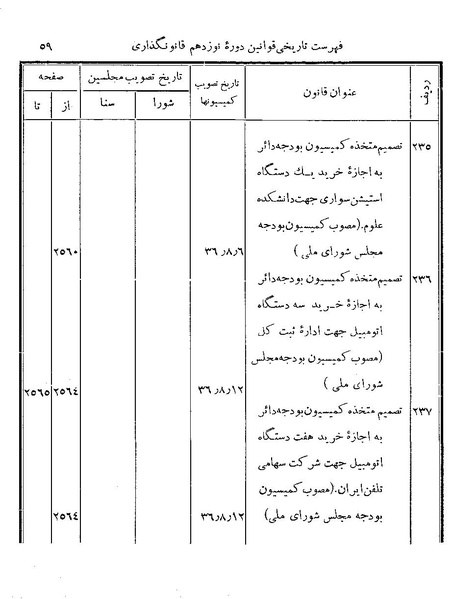 فهرست تاریخی قوانین دورهٔ نوزدهم قانونگذاری ٥٩
ردیف عنوان قانون تاریخ تصویب کمیسیونها تاریخ تصویب مجلسین صفحه
شورا سنا از تا
٢٣٥ تصمیم متخذه کمیسیون بودجه دائر
به اجازهٔ خرید یک دستگاه
استیشن سواری جهت دانشکده
علوم. (مصوب کمیسیون بودجه
مجلس شورای ملی) ٣٦٫٨٫٦ ٢٥٦٠
٢٣٦ تصمیم متخذه کمیسیون بودجه دائر
به اجازهٔ خرید سه دستگاه
اتومبیل جهت ادارهٔ ثبت کل
(مصوب کمیسیون بودجه مجلس
شورای ملی) ٣٦٫٨٫١٢ ٢٥٦٤ ٢٥٦٥
٢٣٧ تصمیم متخذه کمیسیون بودجه دائر
به اجازهٔ خرید هفت دستگاه
اتومبیل جهت شرکت سهامی
تلفن ایران. (مصوب کمیسیون
بودجه مجلس شورای ملی) ٣٦٫٨٫١٢ ٢٥٦٤